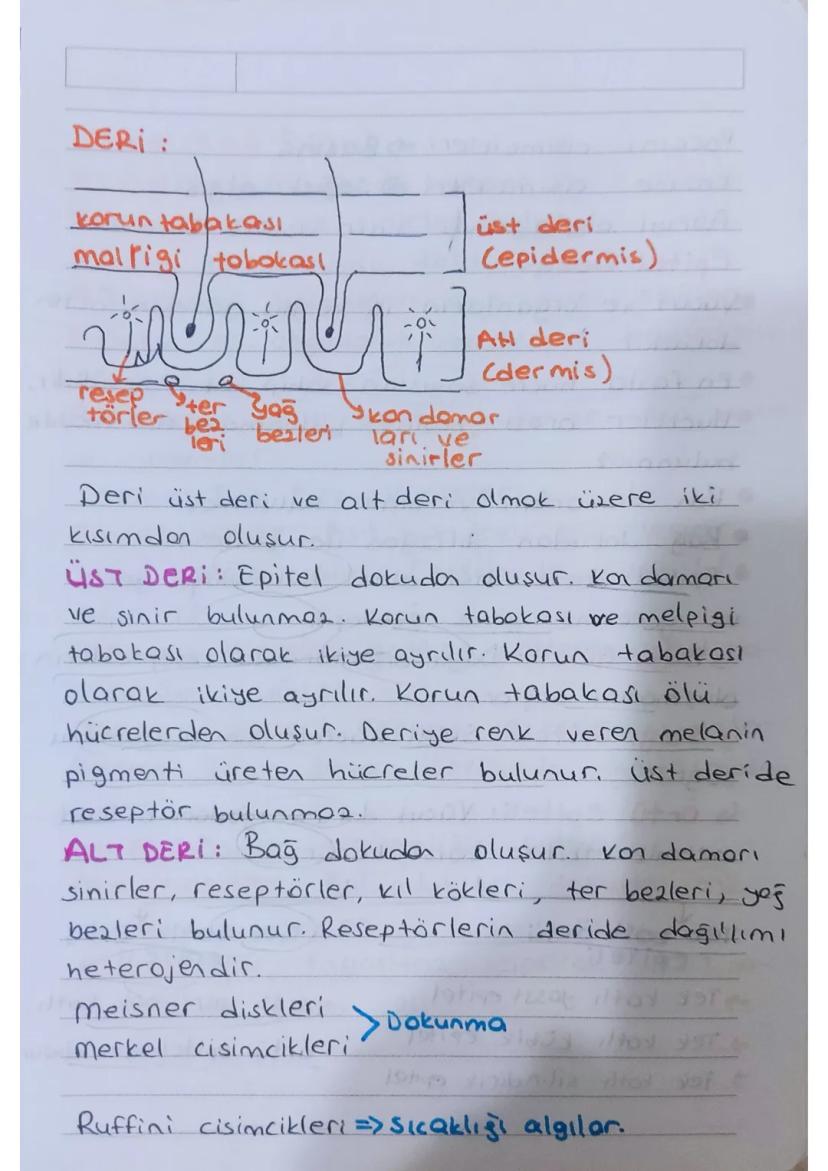 DERİ :
korun tabakası
malpigi tobokası
üst deri
(epidermis)
Alt deri
(dermis)
resep
törler
ter
bez
leri
yağ
bezleri
kan damar
ları ve
sinirler
Deri üst deri ve alt deri olmak üzere iki
kısımdan oluşur.
ÜST DERİ: Epitel dokudan oluşur. Kan damarı
ve sinir bulunmaz. Korun tabokası ve melpigi
tabakası olarak ikiye ayrılır. Korun tabakası
olarak ikiye ayrılır. Korun tabakası ölü
hücrelerden oluşur. Deriye renk veren melanin
pigmenti üreten hücreler bulunur. Üst deride
reseptör bulunmaz.
ALT DERİ: Bağ dokudan oluşur. Kan damarı
sinirler, reseptörler, kıl kökleri, ter bezleri, yağ
bezleri bulunur. Reseptörlerin deride dağılımı
heterojendir.
Meisner diskleri
merkel cisimcikleri
> Dokunma
Ruffini cisimcikleri => sıcaklığı algılar.